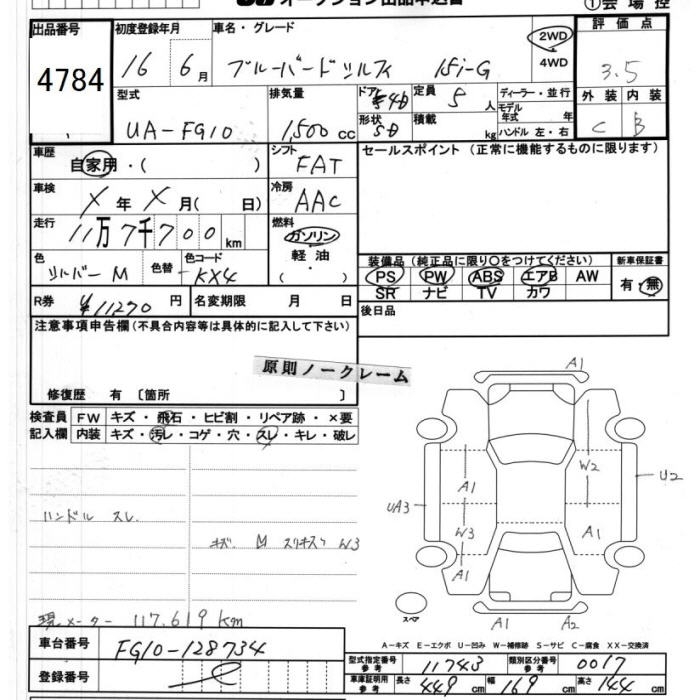 オークション出品申込書
①会場控
出品番号 初度登録年月 車名・グレード 2WD 評価点
4784 16 6月 ブルーバードシルフィ 15i-G 4WD 3.5
型式 排気量 ドア 定員 5人 ディーラー・並行 外装 内装
UA-FG10 1,500cc 形状 SD 積載 kg モデル年式 年 ハンドル 左・右 C B
車歴 自家用・( ) シフト FAT セールスポイント (正常に機能するものに限ります)
車検 X年 X月( 日) 冷房 AAC
走行 11万7千700km 燃料 ガソリン 軽油 ( ・ )
色 シルバーM 色替 色コード KX4
装備品 (純正品に限り○をつけてください) 新車保証書
PS PW ABS エアB AW 有・無
SR ナビ TV カワ
R券 ¥11270円 名変期限 月 日 後日品
注意事項申告欄 (不具合内容等は具体的に記入して下さい)
原則ノークレーム
修復歴 有 〔箇所 〕
検査員 FW キズ・飛石・ヒビ割・リペア跡・×要
記入欄 内装 キズ・汚レ・コゲ・穴・スレ・キレ・破レ
A1
W2
A1 U2
UA3
W3 A1
A1
スペア A1 A2
ハンドル スレ
キズ M スリキズ W3
メーター 117.619km
車台番号 FG10-128734
登録番号
A-キズ E-エクボ U-凹み W-補修跡 S-サビ C-腐食 XX-交換済
型式指定番号 参考 11743 類別区分番号 参考 0017
車庫証明用 参考 長さ 449cm 幅 169cm 高さ 144cm